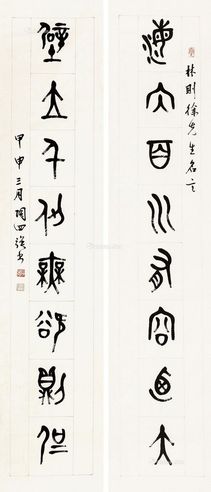 林則徐先生名言
海內百川有容迺大
壁立千仞無欲則剛
甲申三月陶四強書